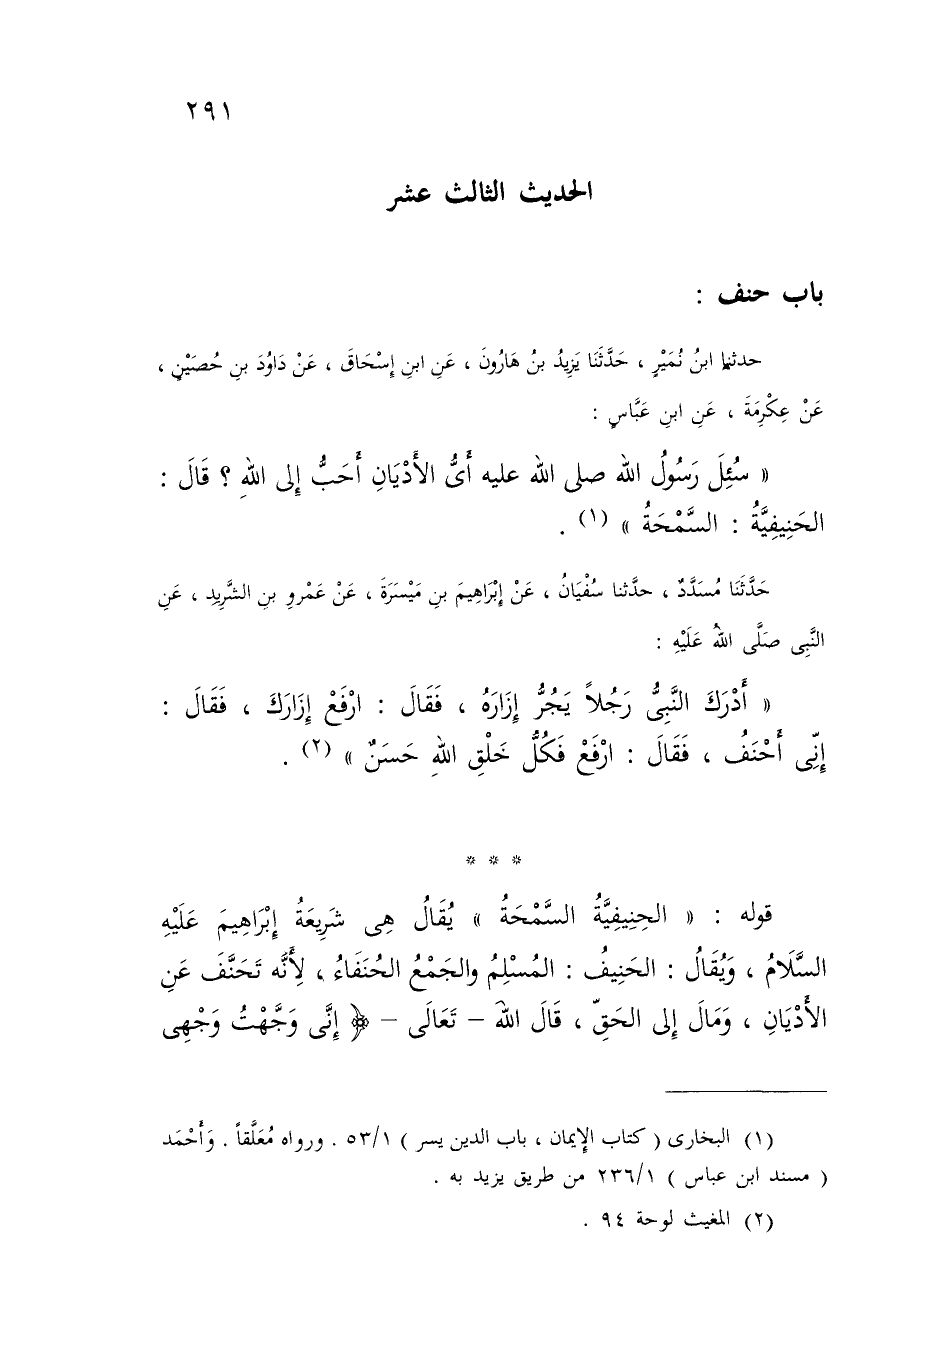 ٢٩١
الحديث الثالث عشر
باب حنف :
حدثنا ابنُ نُمَيْرٍ ، حَدَّثَنَا يَزِيدُ بنُ هَارُونَ ، عَنِ ابنِ إِسْحَاقَ ، عَنْ دَاوُدَ بنِ حُصَيْنٍ ،
عَنْ عِكْرِمَةَ ، عَنِ ابنِ عَبَّاسٍ :
« سُئِلَ رَسُولُ اللهِ صلى الله عليه أَىُّ الأَدْيَانِ أَحَبُّ إِلى اللهِ ؟ قَالَ :
الحَنِيفِيَّةُ : السَّمْحَةُ » (١) .
حَدَّثَنَا مُسَدَّدٌ ، حدَّثنا سُفْيَانُ ، عَنْ إِبْرَاهِيمَ بنِ مَيْسَرَةَ ، عَنْ عَمْرِو بنِ الشَّرِيدِ ، عَنِ
النَّبِى صَلَّى اللهُ عَلَيْهِ :
« أَدْرَكَ النَّبِىُّ رَجُلاً يَجُرُّ إِزَارَهُ ، فَقَالَ : ارْفَعْ إِزَارَكَ ، فَقَالَ :
إِنِّى أَحْنَفُ ، فَقَالَ : ارْفَعْ فَكُلُّ خَلْقِ اللهِ حَسَنٌ » (٢) .
* * *
قوله : « الحِنِيفِيَّةُ السَّمْحَةُ » يُقَالُ هِى شَرِيعَةُ إِبْرَاهِيمَ عَلَيْهِ
السَّلَامُ ، وَيُقَالُ : الحَنِيفُ : المُسْلِمُ والجَمْعُ الحُنَفَاءُ ، لِأَنَّه تَحَنَّفَ عَنِ
الأَدْيَانِ ، وَمَالَ إِلى الحَقِّ ، قَالَ اللهُ – تَعَالَى – ﴿ إِنَّى وَجَّهْتُ وَجْهِى
(١) البخارى ( كتاب الإيمان ، باب الدين يسر ) ٥٣/١ . ورواه مُعَلَّقاً . وَأَحْمَد
( مسند ابن عباس ) ٢٣٦/١ من طريق يزيد به .
(٢) المغيث لوحة ٩٤ .